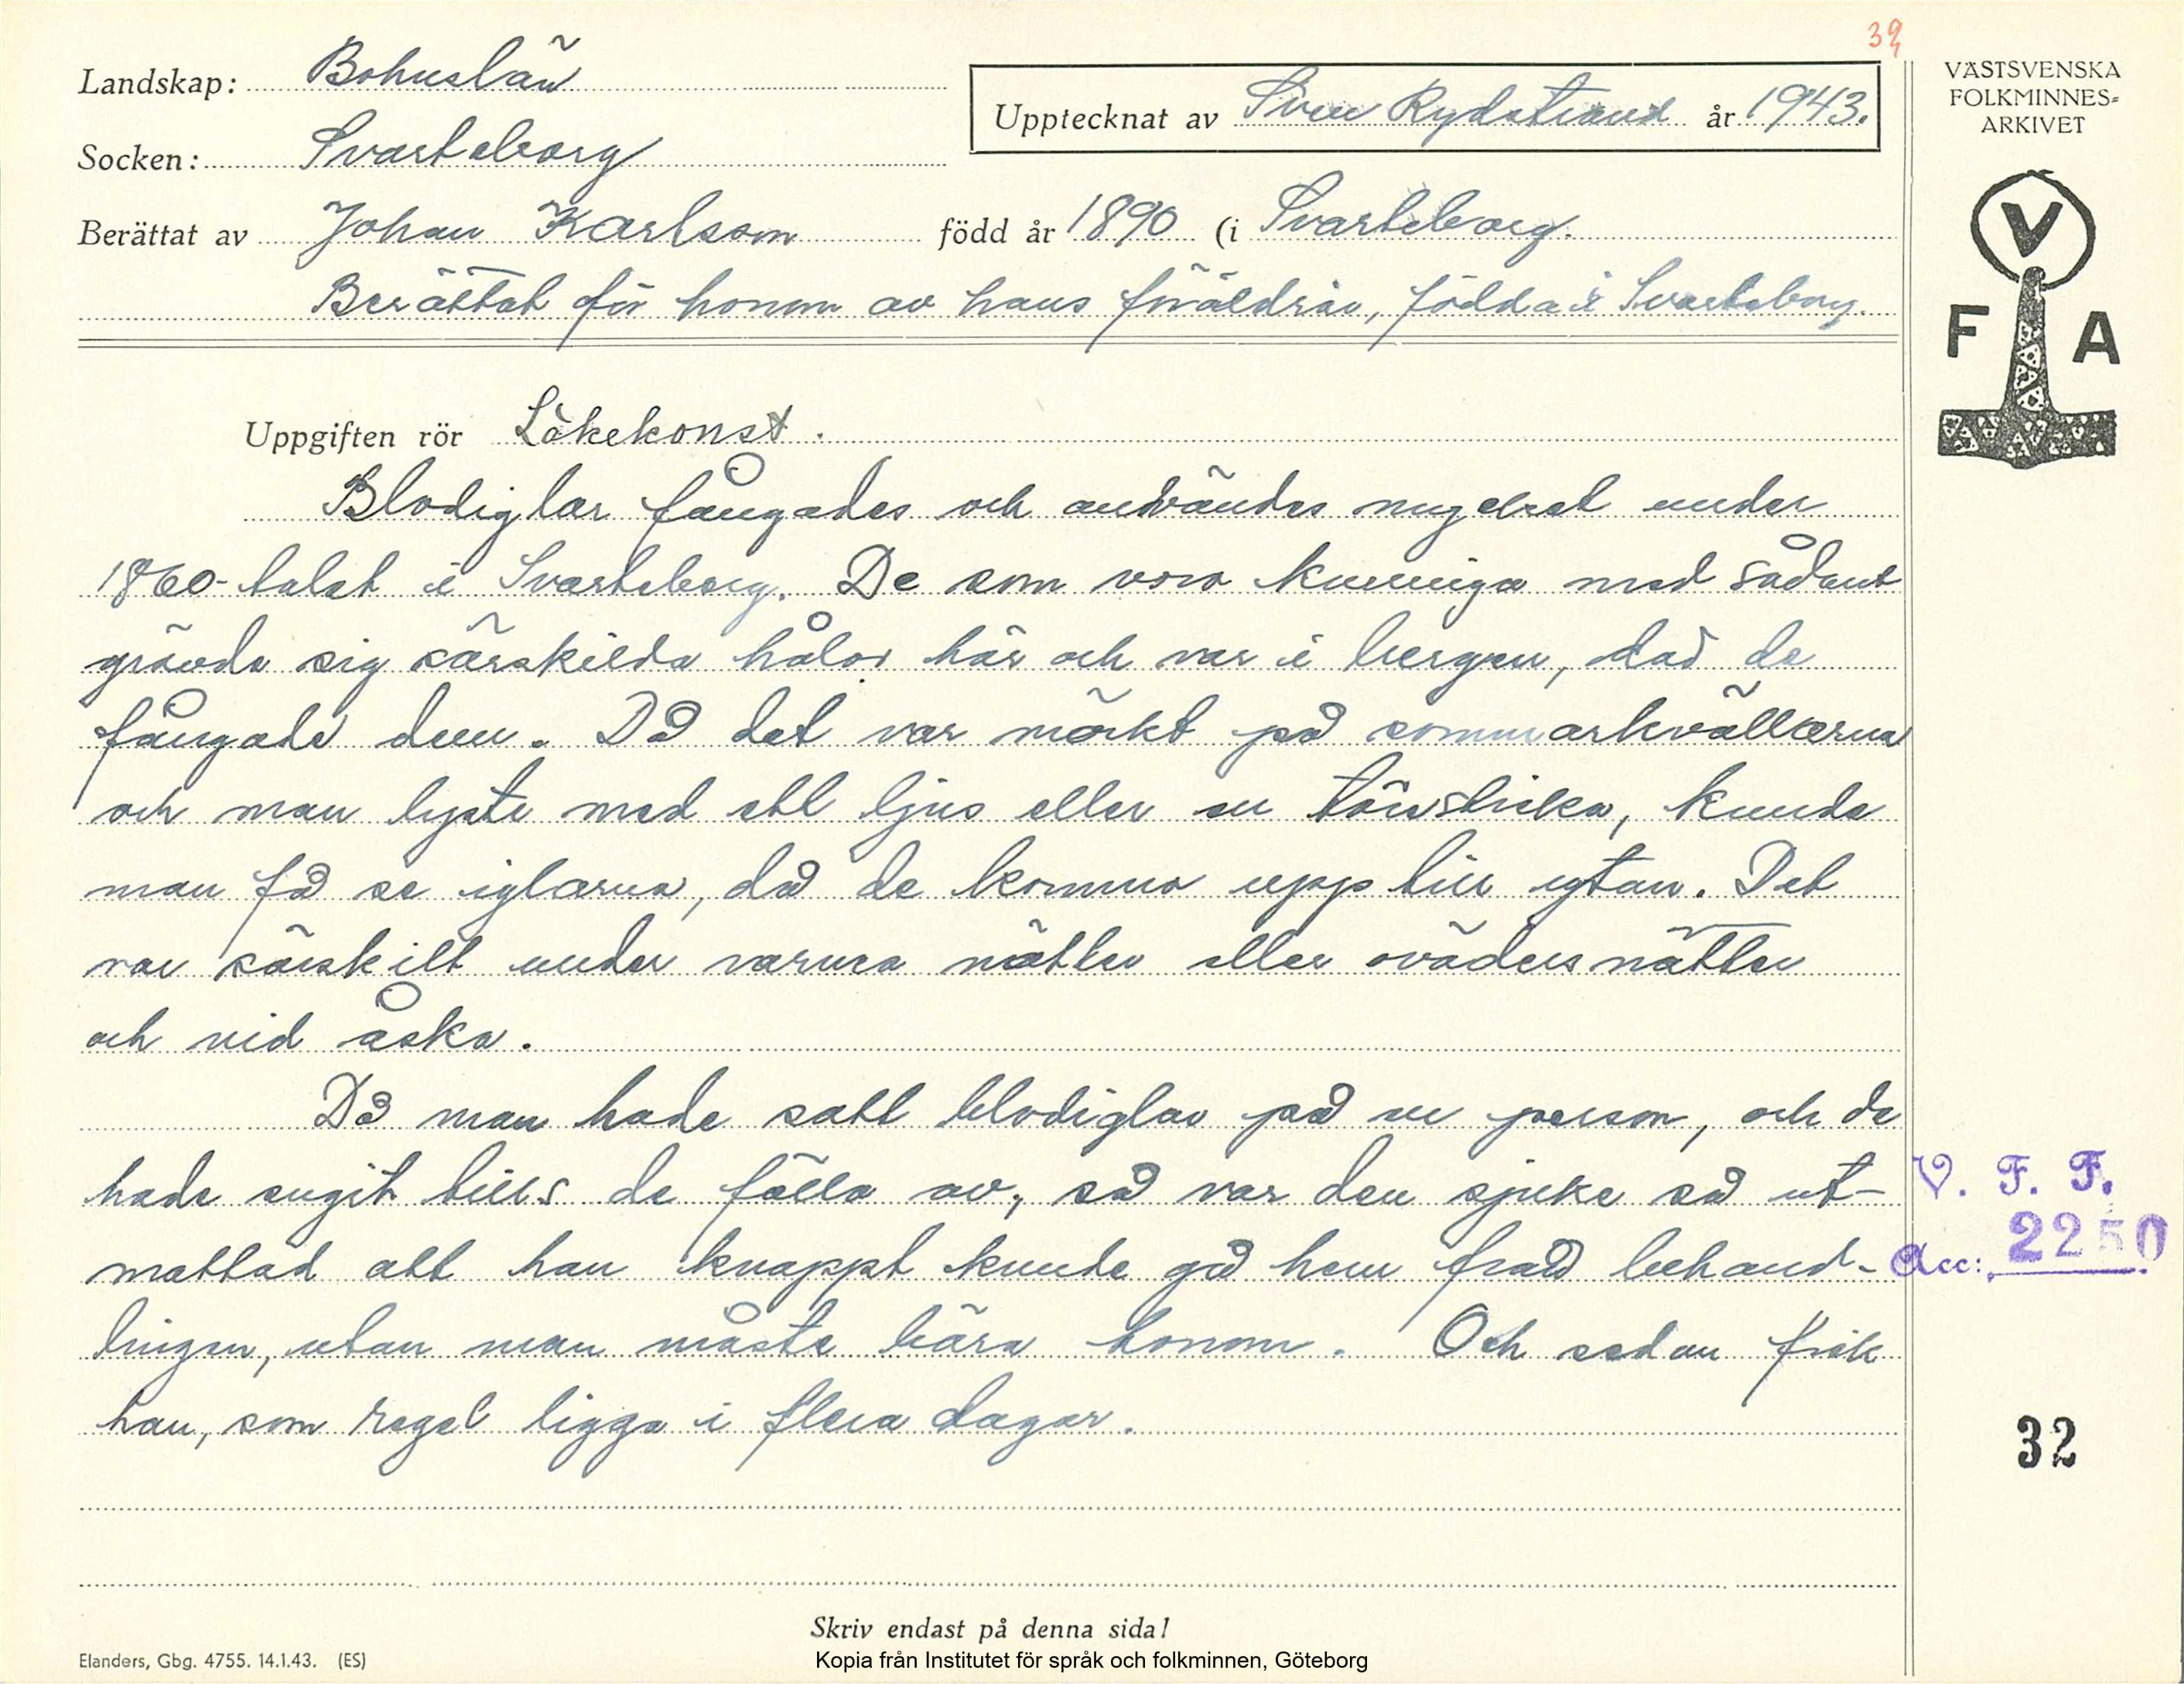 39
Landskap: Bohuslän
Upptecknat av Sven Rydstrand år 1943.
Socken: Svarteborg
Berättat av Johan Karlsson född år 1890 (i Svarteborg.
Berättat för honom av hans föräldrar, födda i Svarteborg.
VÄSTSVENSKA
FOLKMINNES-
ARKIVET
V
F A
Uppgiften rör Läkekonst.
Blodiglar fångades och användes mycket under
1860-talet i Svarteborg. De som voro kunniga med sådant
grävde sig särskilda hålor här och var i bergen, där de
fångade dem. Då det var mörkt på sommarkvällarna
och man lyste med ett ljus eller en törvsticka, kunde
man få se iglarna, då de kommo upp till ytan. Det
var särskilt under varma nätter eller ovädersnätter
och vid åska.
Då man hade satt blodiglar på en person, och de
hade sugit tills de fälla av, så var den sjuke så ut-
mattad att han knappt kunde gå hem från behand-
lingen, utan man måste bära honom. Och sedan fick
han, som regel ligga i flera dagar.
V. F. F.
Acc: 2250
32
Skriv endast på denna sida!
Elanders, Gbg. 4755. 14.1.43. (ES)
Kopia från Institutet för språk och folkminnen, Göteborg